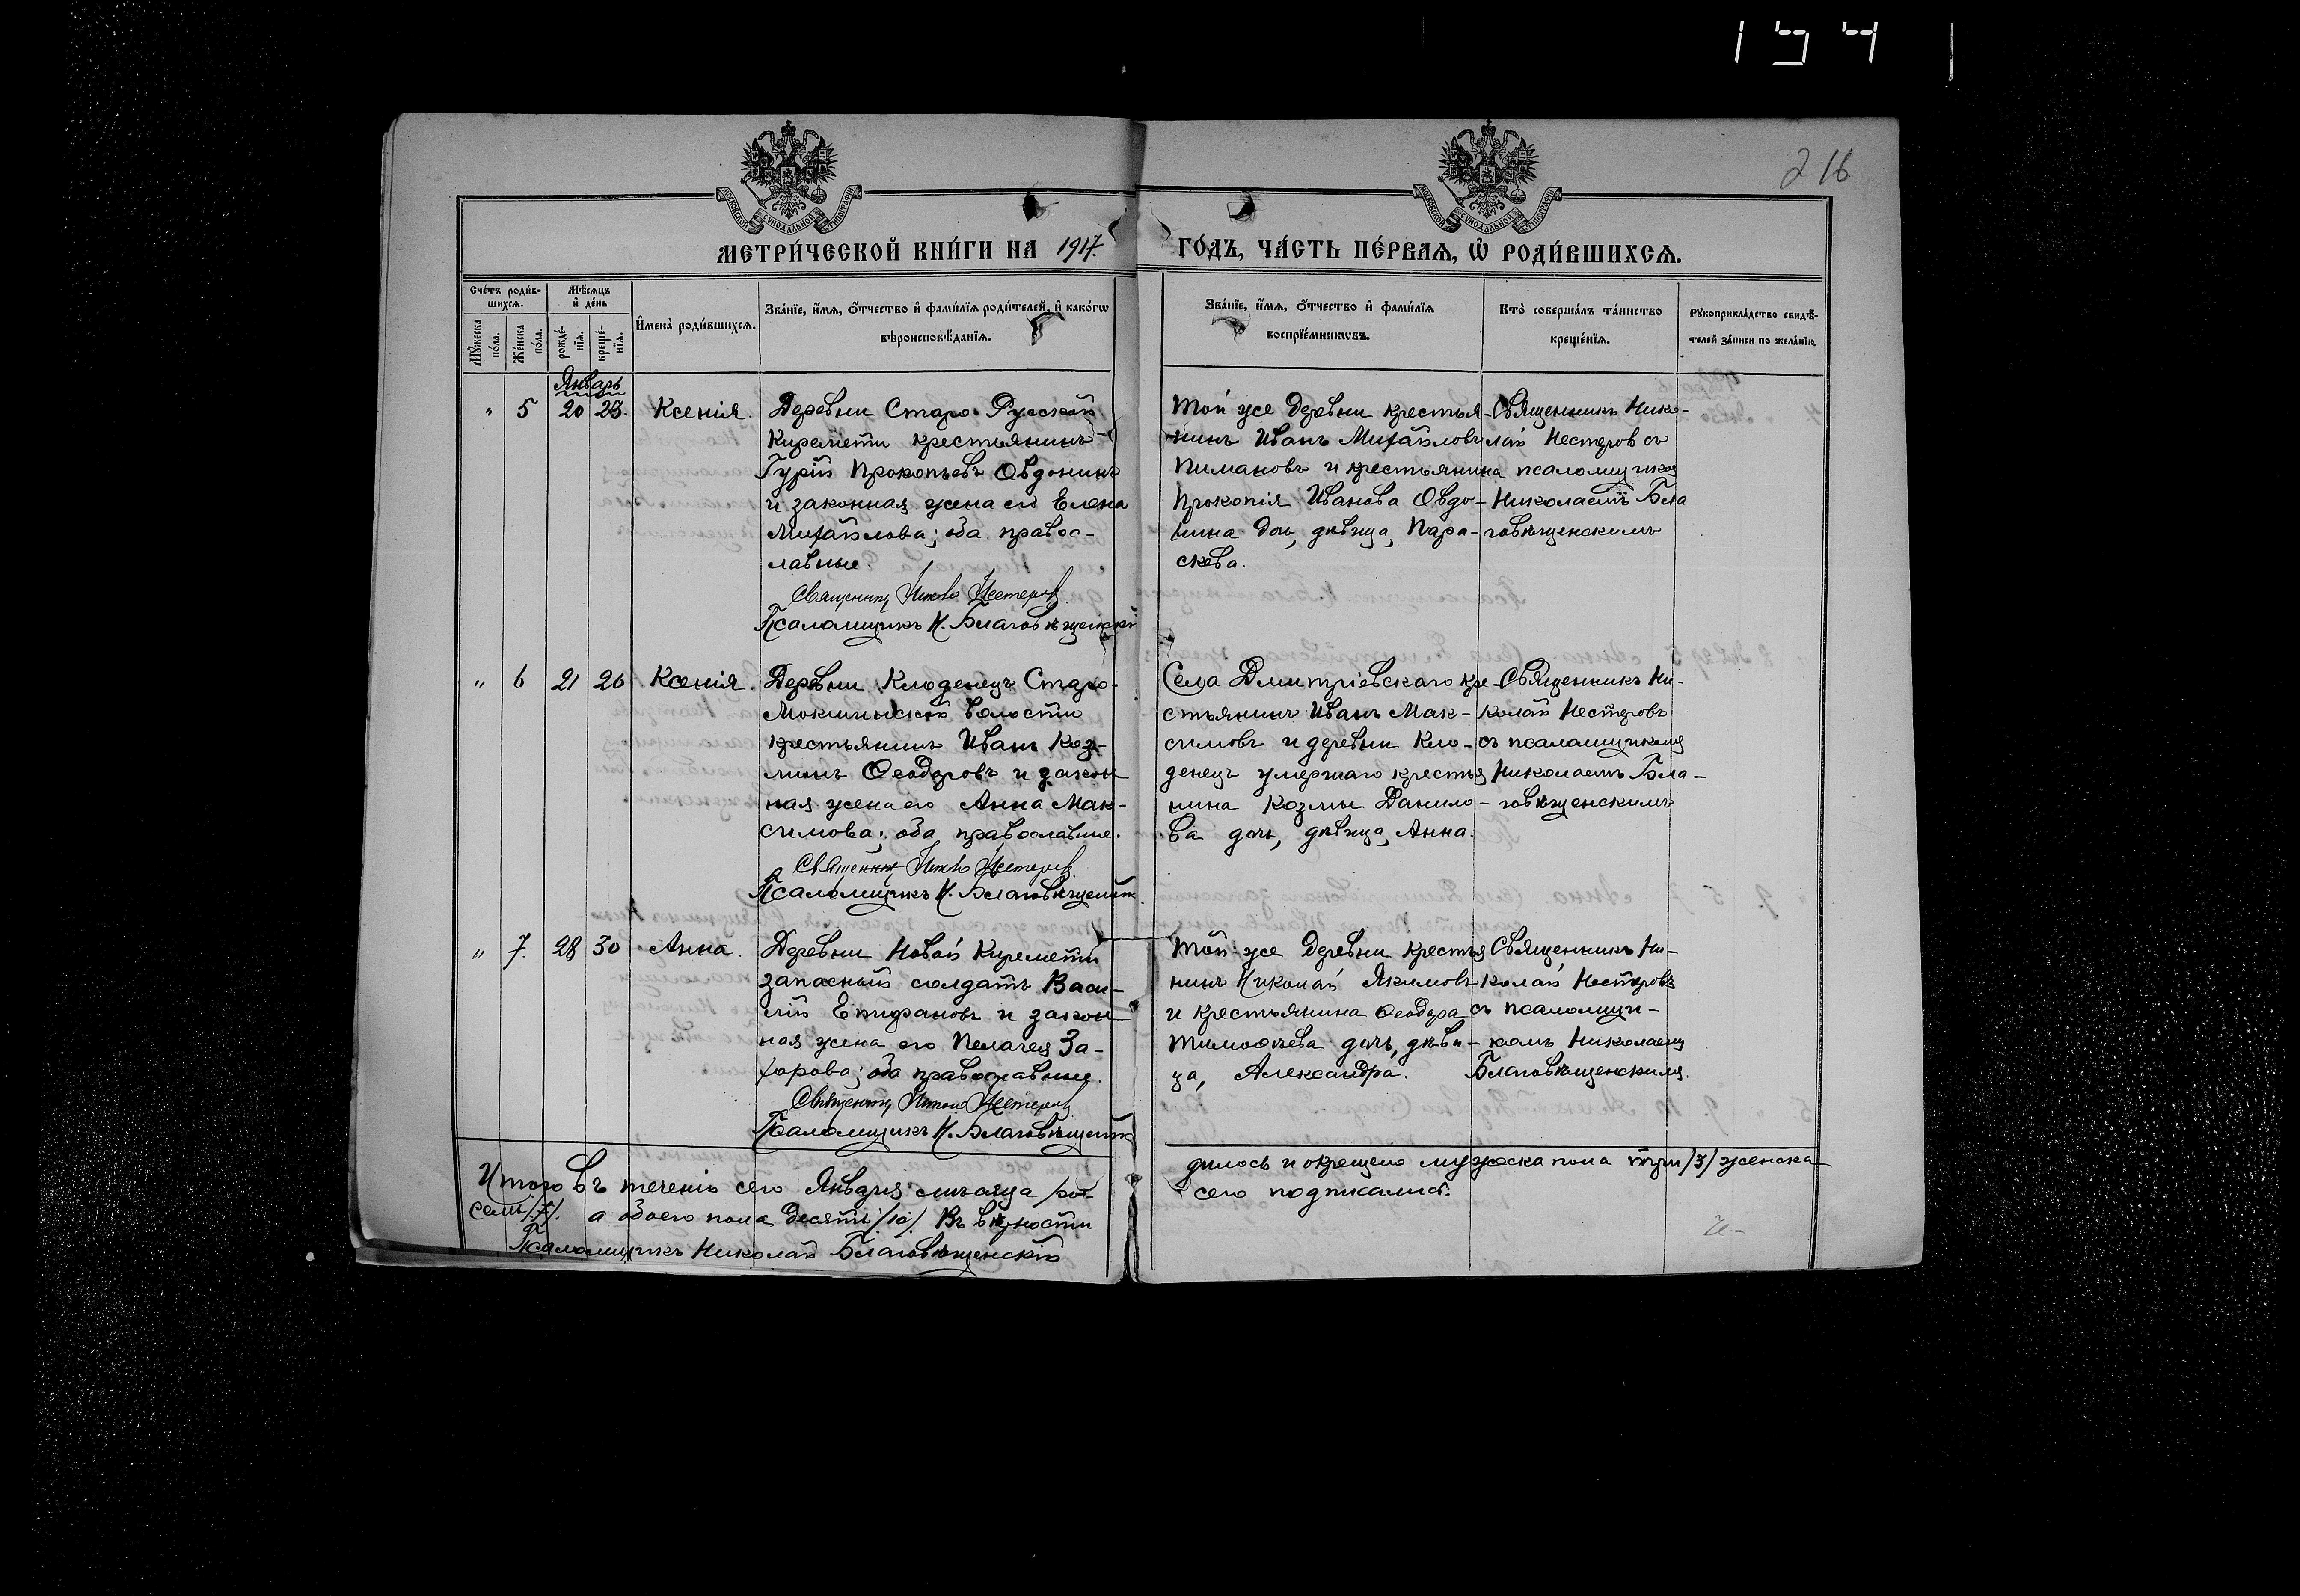 216
МОСКОВСКОЙ СѴНОДАЛЬНОЙ ТИПОГРАФІИ
МОСКОВСКОЙ СѴНОДАЛЬНОЙ ТИПОГРАФІИ
МЕТРИ́ЧЕСКОЙ КНИ́ГИ НА 1917.
ГО́ДЪ, ЧА́СТЬ ПЕ́РВАѦ, Ѽ РОДИ́ВШИХСѦ.
Сче́тъ роди́в-
шихсѧ.
Мꙋ́жеска по́ла.
Же́нска по́ла.
Мѣ́сѧцъ и҆ де́нь
рожде́-нїѧ.
креще́-нїѧ.
И҆мена̀ роди́вшихсѧ.
Зва́нїе, и҆́мѧ, о҆́тчество и҆ фами́лїѧ роди́телей, и҆ како́гѡ
вѣроисповѣ́данїѧ.
Зва́нїе, и҆́мѧ, о҆́тчество и҆ фами́лїѧ
воспрїе́мникѡвъ.
Кто̀ соверша́лъ та́инство
креще́нїѧ.
Рꙋкоприкла́дство свидѣ́-
телей за́писи по жела́нїю.
Январь
" 5 20 23. Ксенія.
Деревни Старо-Русской
Киремети крестьянинъ
Гурій Прокопьевъ Овдонинъ
и законная жена его Елена
Михайлова; оба правос-
лавные.
Священникъ Нестеровъ
Псаломщикъ Н. Благовѣщенскій
Той же деревни крестья-
нинъ Иванъ Михайловъ
Пимановъ и крестьянина
Прокопія Иванова Овдо-
нина дочь, дѣвица, Пара-
скева.
Священникъ Нико-
лай Нестеровъ съ
псаломщикомъ
Николаемъ Бла
говѣщенскимъ
" 6 21 26 Ксенія.
Деревни Клоденецъ Старо-
Мокшинской волости
крестьянинъ Иванъ Коз-
минъ Ѳеодоровъ и закон
ная жена его Анна Мак-
симова; оба православные.
Священникъ Нестеровъ
Псаломщикъ Н. Благовѣщенск
Села Димитріевскаго кре-
стьянинъ Иванъ Мак-
симовъ и деревни Кло-
денецъ умершаго крестья
нина Козмы Данило-
ва дочь, дѣвица, Анна.
Священникъ Ни-
колай Нестеровъ
съ псаломщикомъ
Николаемъ Бла-
говѣщенскимъ
" 7. 28 30 Анна.
Деревни Новой Киремети
запасный солдатъ Васи-
лій Епифановъ и закон
ная жена его Пелагея За-
харова; оба православные.
Священникъ Нестеровъ
Псаломщикъ Н. Благовѣщенск
Той-же деревни крестья
нинъ Николай Якимовъ
и крестьянина Ѳеодора
Тимоѳѣева дочь, дѣви-
ца, Александра.
Священникъ Ни-
колай Нестеровъ
съ псаломщи-
комъ Николаемъ
Благовѣщенскимъ.
Итого въ теченіе сего Января мѣсяца ро-
дилось и окрещено мужеска пола три /3/ женска
семь /7/. а обоего пола десять /10/. Въ вѣрности
сего подписались:
Псаломщикъ Николай Благовѣщенскій